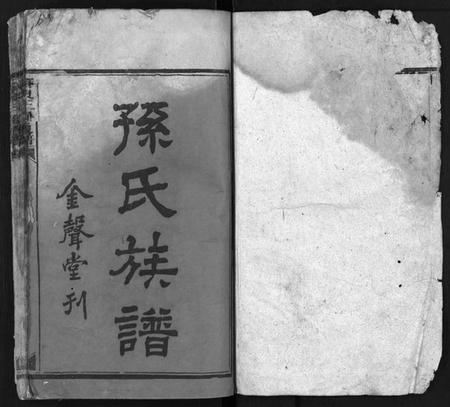 孫氏族譜
金聲堂刋